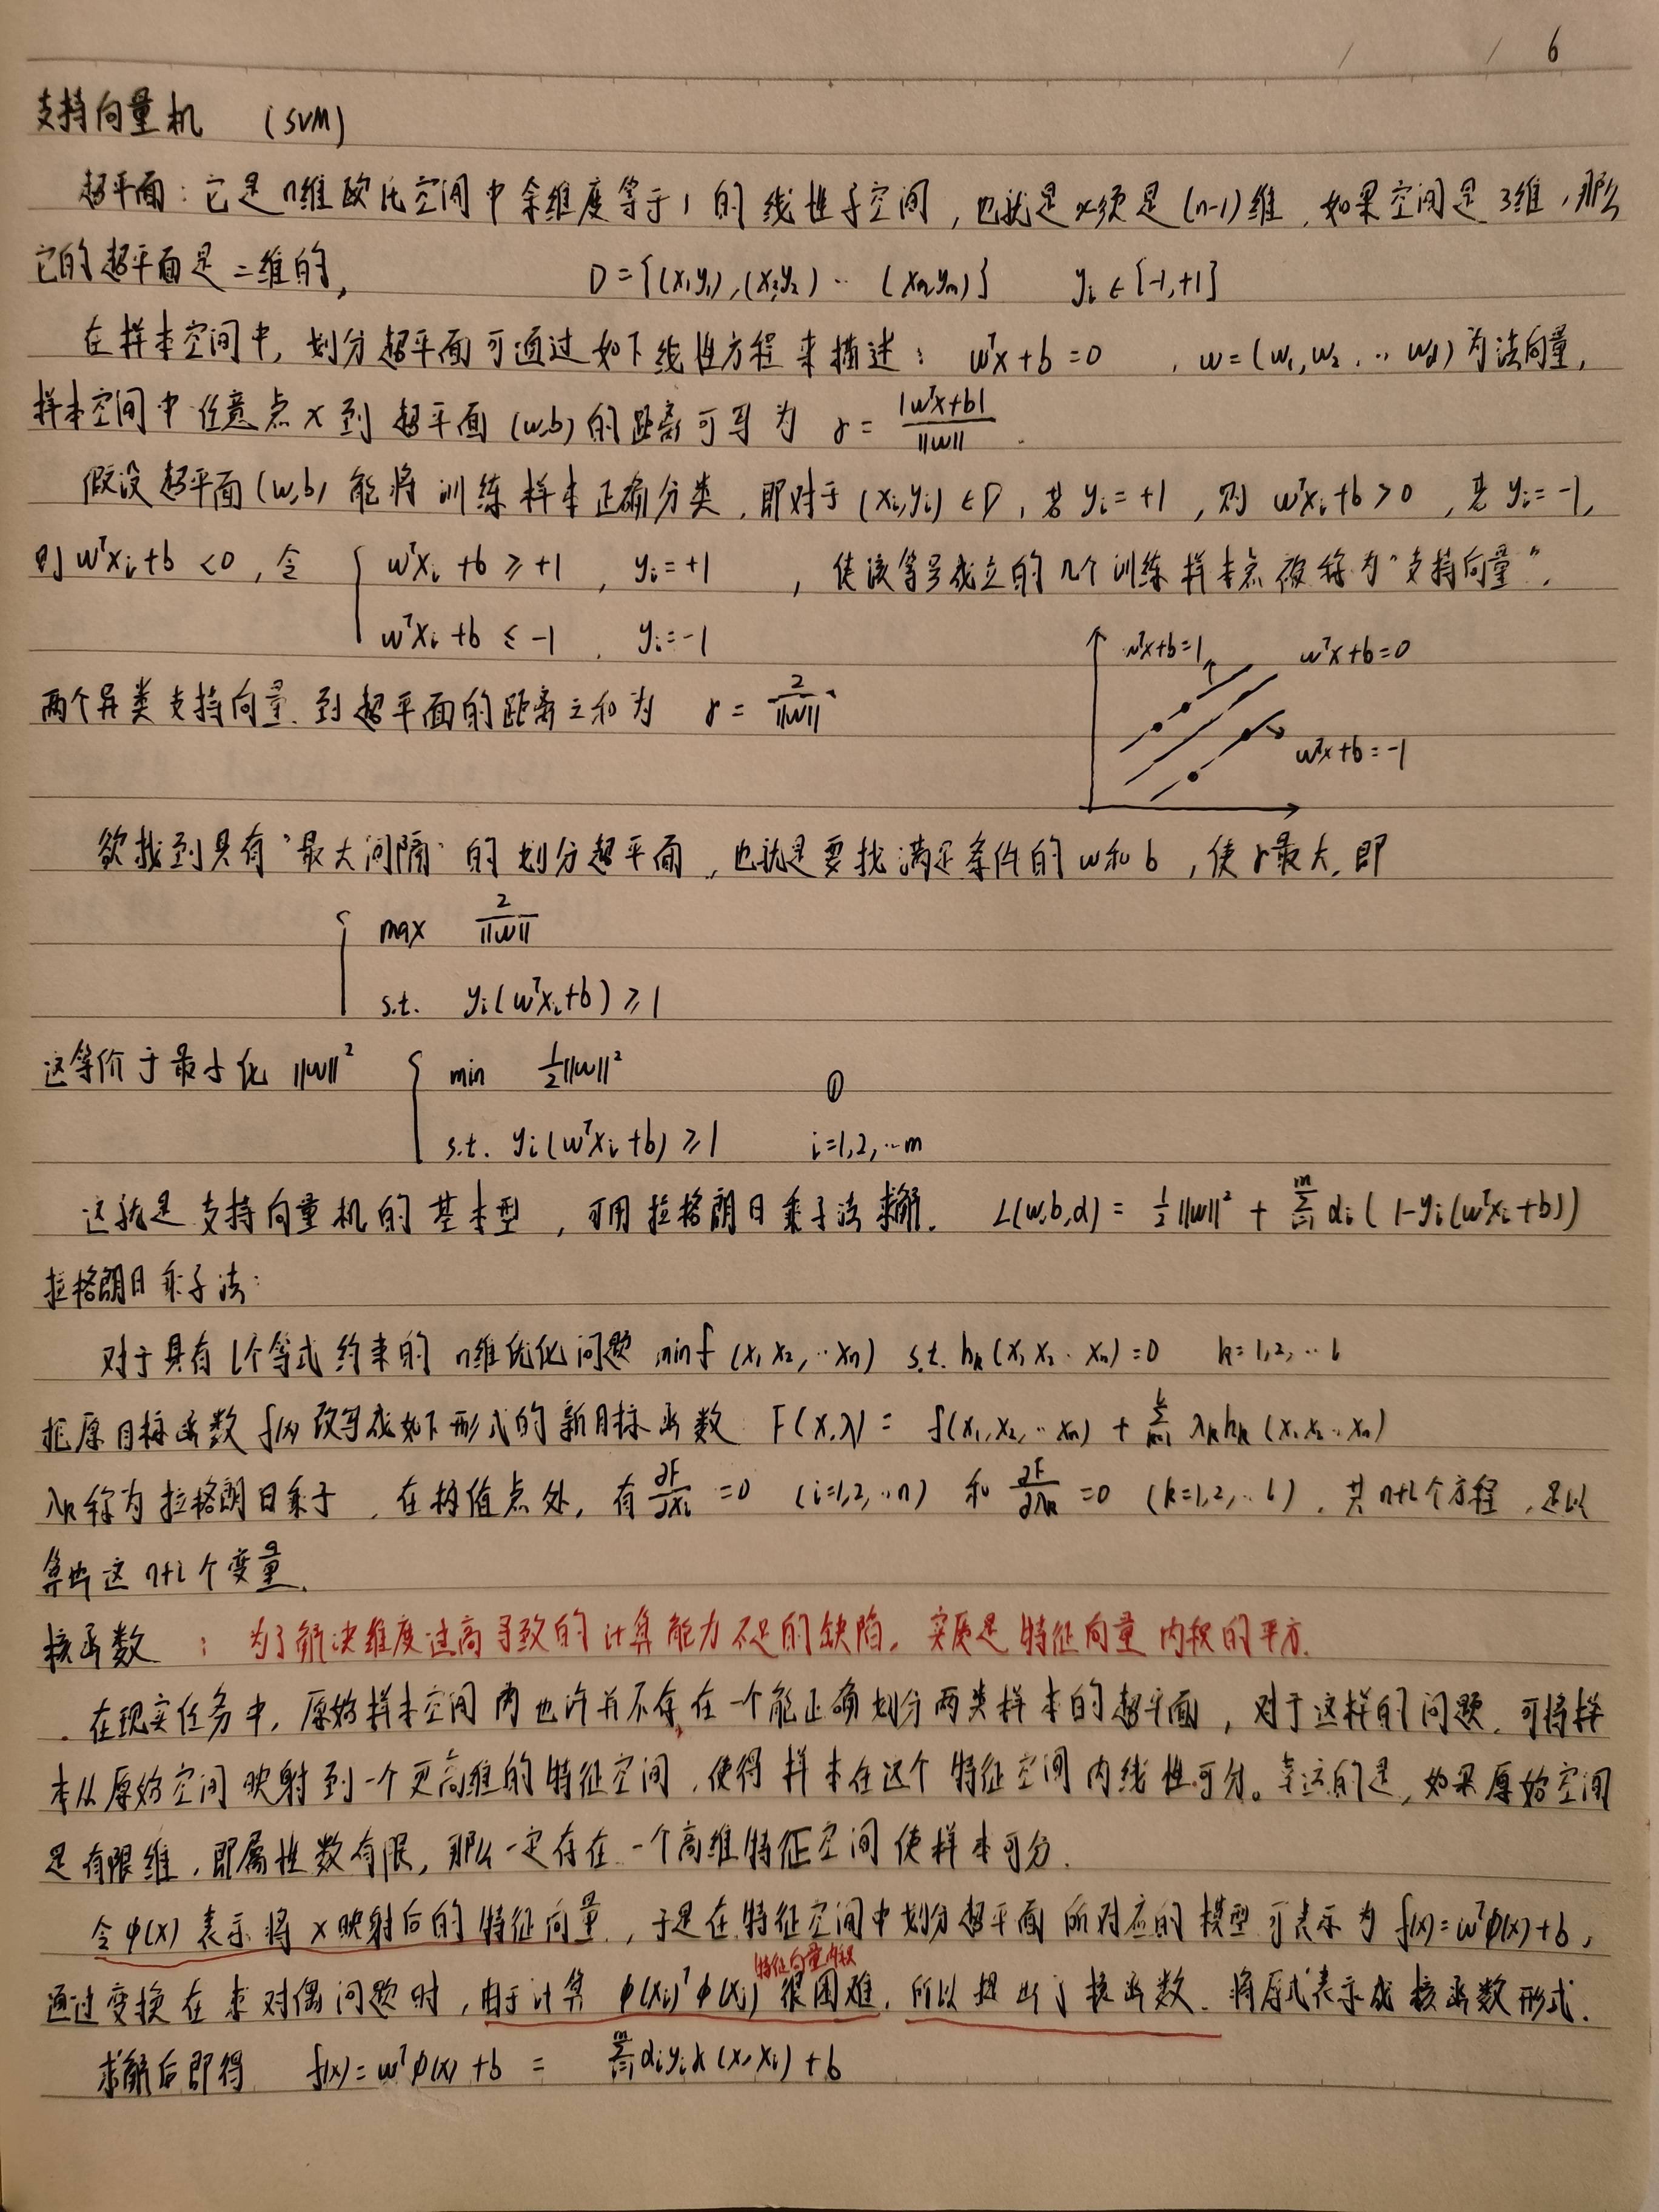 6
支持向量机 (SVM)
超平面：它是n维欧氏空间中余维度等于1的线性子空间，也就是必须是(n-1)维，如果空间是3维，那么
它的超平面是二维的，　D={(x₁y₁),(x₂y₂)‥(xₘyₘ)}　yᵢ∈{-1,+1}
在样本空间中，划分超平面可通过如下线性方程来描述：wᵀx+b=0 ，w=(w₁,w₂,‥w_d)为法向量，
样本空间中任意点x到超平面(w,b)的距离可写为 r=|wᵀx+b|/||w||.
假设超平面(w,b)能将训练样本正确分类，即对于(xᵢ,yᵢ)∈D，若yᵢ=+1，则wᵀxᵢ+b>0，若yᵢ=-1,
则wᵀxᵢ+b<0，令 { wᵀxᵢ+b≥+1 , yᵢ=+1 ，使该等号成立的几个训练样本点被称为“支持向量”.
wᵀxᵢ+b≤-1 , yᵢ=-1
wᵀx+b=1　wᵀx+b=0
两个异类支持向量到超平面的距离之和为 r=2/||w||
wᵀx+b=-1
欲找到具有“最大间隔”的划分超平面，也就是要找满足条件的w和b，使r最大，即
{ max 2/||w||
s.t. yᵢ(wᵀxᵢ+b)≥1
这等价于最小化 ||w||² { min ½||w||² ①
s.t. yᵢ(wᵀxᵢ+b)≥1 i=1,2,‥m
这就是支持向量机的基本型，可用拉格朗日乘子法求解. L(w,b,α)=½||w||²+∑ᵢ₌₁ᵐ αᵢ(1-yᵢ(wᵀxᵢ+b))
拉格朗日乘子法：
对于具有l个等式约束的n维优化问题 min f(x₁x₂,‥xₙ) s.t. hₖ(x₁x₂‥xₙ)=0 k=1,2,‥l
把原目标函数f(x)改写成如下形式的新目标函数 F(x,λ)=f(x₁,x₂,‥xₙ)+∑ λₖhₖ(x₁x₂‥xₙ)
λₖ称为拉格朗日乘子，在极值点处，有∂F/∂xᵢ=0 (i=1,2,‥n) 和 ∂F/∂λₖ=0 (k=1,2,‥l)，共n+l个方程，足以
算出这n+l个变量.
核函数：为了解决维度过高导致的计算能力不足的缺陷，实质是特征向量内积的平方.
在现实任务中，原始样本空间内也许并不存在一个能正确划分两类样本的超平面，对于这样的问题，可将样
本从原始空间映射到一个更高维的特征空间，使得样本在这个特征空间内线性可分。幸运的是，如果原始空间
是有限维，即属性数有限，那么一定存在一个高维特征空间使样本可分.
令φ(x)表示将x映射后的特征向量，于是在特征空间中划分超平面所对应的模型可表示为f(x)=wᵀφ(x)+b，
特征向量内积
通过变换在求对偶问题时，由于计算φ(xᵢ)ᵀφ(xⱼ)很困难，所以提出了核函数. 将原式表示成核函数形式.
求解后即得 f(x)=wᵀφ(x)+b = ∑ᵢ₌₁ᵐ αᵢyᵢk(x,xᵢ)+b